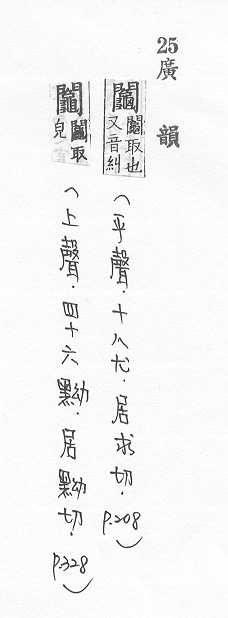 25廣韻
鬮 鬭取也
又音糾
(平聲．十八尤．居求切．p.208)
鬮 鬭取
皃
(上聲．四十六黝．居黝切．p.328)